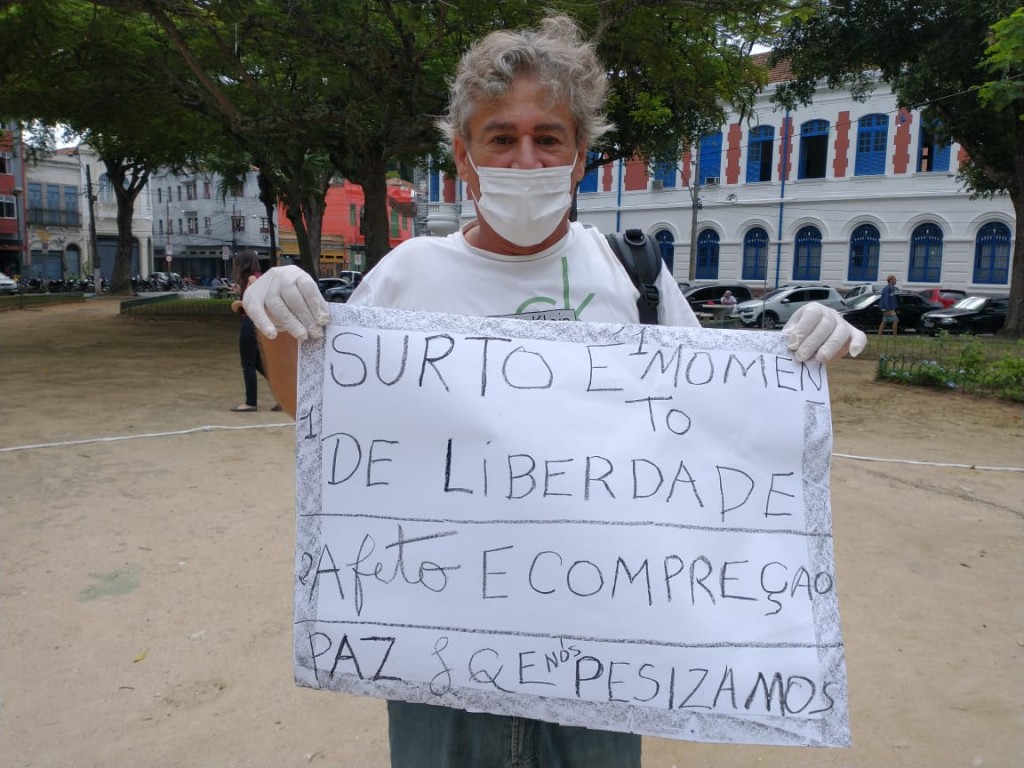 SURTO E 1 MOMEN
TO
1 DE LIBERDADE
O Afeto E COMPREÇAO
PAZ & Q E NóS PESIZAMOS
Klein